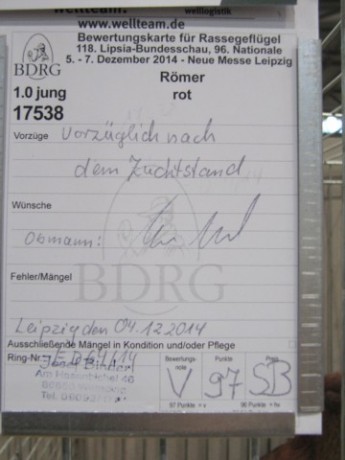 wellteam. wellogistik
www.wellteam.de
Bewertungskarte für Rassegeflügel
118. Lipsia-Bundesschau, 96. Nationale
5. - 7. Dezember 2014 - Neue Messe Leipzig
BDRG
Römer
1.0 jung rot
17538
Vorzüge Vorzüglich nach
dem Zuchtstand
Wünsche
Obmann:
BDRG
Fehler/Mängel
Leipzig den 04.12.2014
Ausschließende Mängel in Kondition und/oder Pflege
Ring-Nr.
Josef Binder
Bewertungs-note Punkte Preis
V 97 SB
97 Punkte = v 96 Punkte = hv